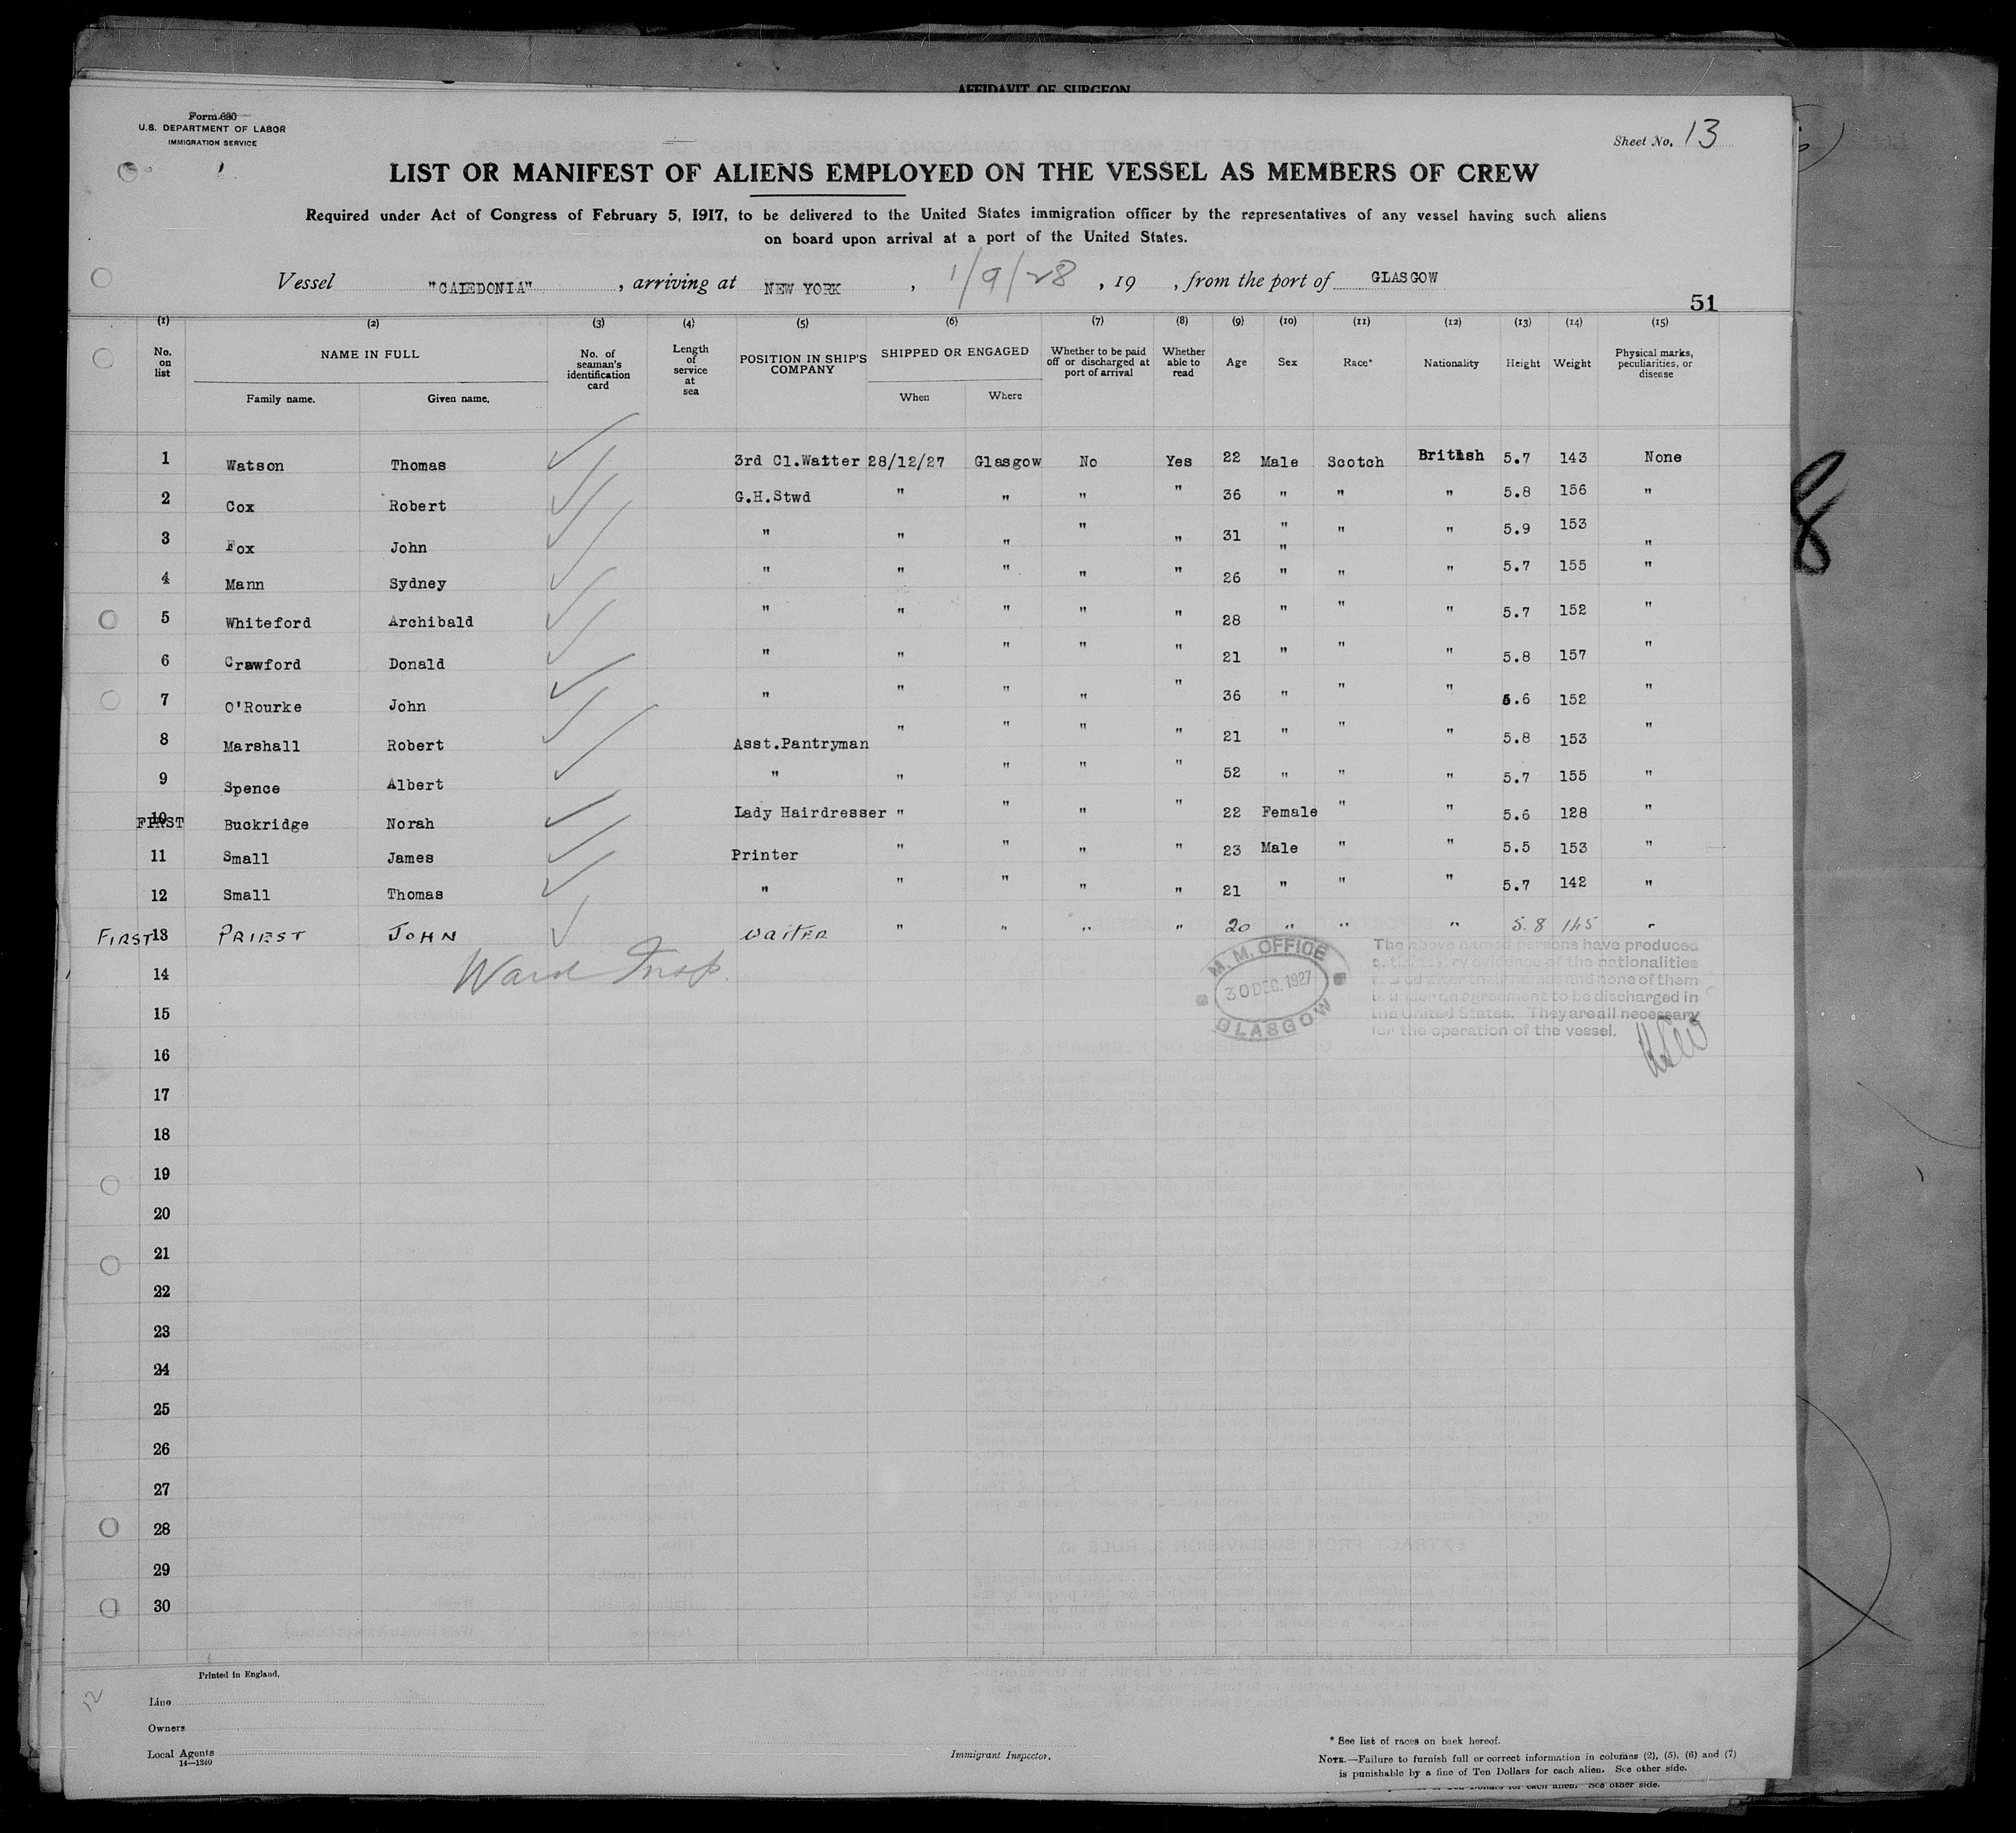 AFFIDAVIT OF SURGEON
Form 680
U.S. DEPARTMENT OF LABOR
IMMIGRATION SERVICE
Sheet No. 13
LIST OR MANIFEST OF ALIENS EMPLOYED ON THE VESSEL AS MEMBERS OF CREW
Required under Act of Congress of February 5, 1917, to be delivered to the United States immigration officer by the representatives of any vessel having such aliens
on board upon arrival at a port of the United States.
Vessel "CALEDONIA", arriving at NEW YORK, 1/9/28, 19 , from the port of GLASGOW
51
(1) (2) (3) (4) (5) (6) (7) (8) (9) (10) (11) (12) (13) (14) (15)
No. on list NAME IN FULL Family name. Given name. No. of seaman's identification card Length of service at sea POSITION IN SHIP'S COMPANY SHIPPED OR ENGAGED When Where Whether to be paid off or discharged at port of arrival Whether able to read Age Sex Race* Nationality Height Weight Physical marks, peculiarities, or disease
1 Watson Thomas 3rd Cl.Waiter 28/12/27 Glasgow No Yes 22 Male Scotch British 5.7 143 None
2 Cox Robert G.H.Stwd " " " " 36 " " " 5.8 156 "
3 Fox John " " " " " 31 " " " 5.9 153 "
4 Mann Sydney " " " " " 26 " " " 5.7 155 "
5 Whiteford Archibald " " " " " 28 " " " 5.7 152 "
6 Crawford Donald " " " " " 21 " " " 5.8 157 "
7 O'Rourke John " " " " " 36 " " " 5.6 152 "
8 Marshall Robert Asst.Pantryman " " " " 21 " " " 5.8 153 "
9 Spence Albert " " " " " 52 " " " 5.7 155 "
10 FIRST Buckridge Norah Lady Hairdresser " " " " 22 Female " " 5.6 128 "
11 Small James Printer " " " " 23 Male " " 5.5 153 "
12 Small Thomas " " " " " 21 " " " 5.7 142 "
FIRST 13 PRIEST JOHN WAITER " " " " 20 " " " 5.8 145 "
14 Ward Insp.
M. M. OFFICE
30 DEC. 1927
GLASGOW
The above named persons have produced
evidence of the nationalities
names and none of them
an agreement to be discharged in
the United States. They are all necessary
for the operation of the vessel.
15
16
17
18
19
20
21
22
23
24
25
26
27
28
29
30
Printed in England.
12
Line
Owners
Local Agents
14—1240
Immigrant Inspector.
* See list of races on back hereof.
NOTE.—Failure to furnish full or correct information in columns (2), (5), (6) and (7)
is punishable by a fine of Ten Dollars for each alien. See other side.
Dollars for each alien. See other side.
8